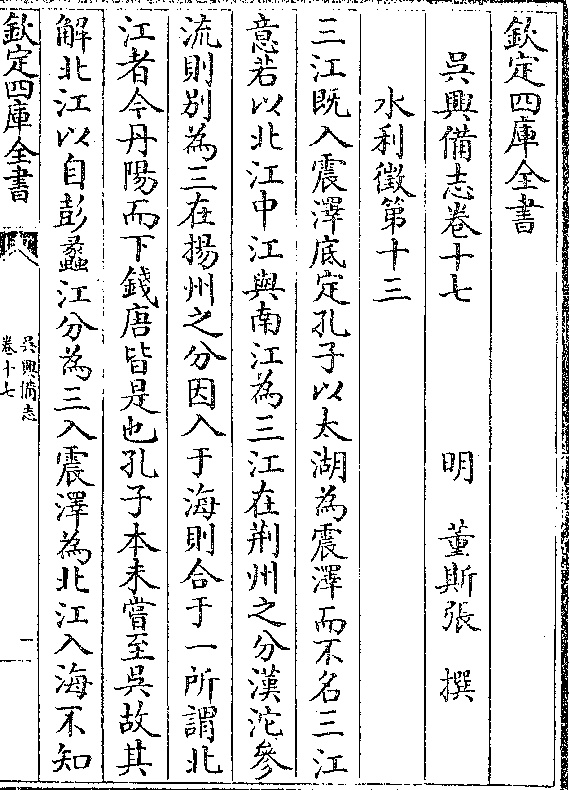 欽定四庫全書
吳興備志卷十七
明 董斯張 撰
水利徵第十三
三江既入震澤底定孔子以太湖為震澤而不名三江
意若以北江中江與南江為三江在荆州之分漢沱參
流則别為三在揚州之分因入于海則合于一所謂北
江者今丹陽而下錢唐皆是也孔子本未嘗至吳故其
解北江以自彭蠡江分為三入震澤為北江入海不知
欽定四庫全書
吳興備志
卷十七
一